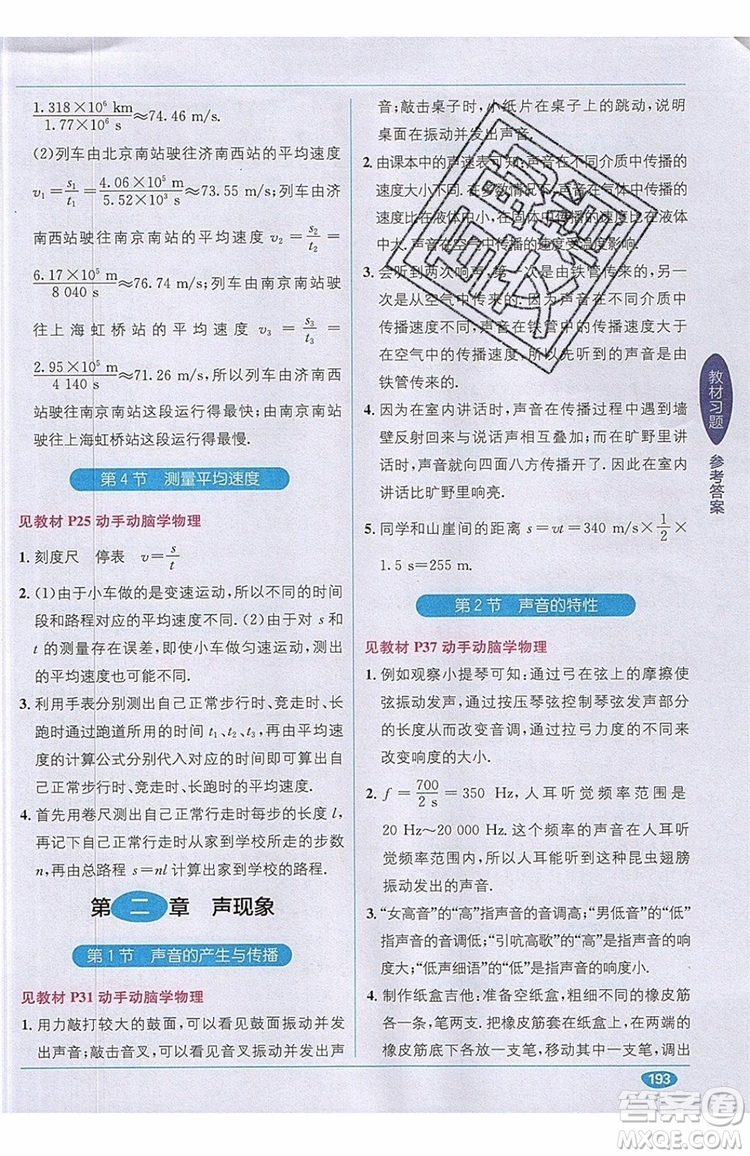 1.318×10⁶ km/1.77×10⁴ s≈74.46 m/s.
(2)列车由北京南站驶往济南西站的平均速度
v₁=s₁/t₁=4.06×10⁵ m/5.52×10³ s≈73.55 m/s;列车由济
南西站驶往南京南站的平均速度 v₂=s₂/t₂=
6.17×10⁵ m/8 040 s≈76.74 m/s;列车由南京南站驶
往上海虹桥站的平均速度 v₃=s₃/t₃=
2.95×10⁵ m/4 140 s≈71.26 m/s,所以列车由济南西
站驶往南京南站这段运行得最快;由南京南
站驶往上海虹桥站这段运行得最慢.
第4节 测量平均速度
见教材 P25 动手动脑学物理
1. 刻度尺 停表 v=s/t
2. (1)由于小车做的是变速运动,所以不同的时间
段和路程对应的平均速度不同.(2)由于小车
的测量存在误差,即使小车做匀速运动,测出
的平均速度也可能不同.
3. 利用手表分别测出自己正常步行时、竞走时、长
跑时通过跑道所用的时间 t₁、t₂、t₃,由平均速
度的计算公式分别代入对应的时间即可算出自
己正常步行、竞走、长跑时的平均速度.
4. 首先用卷尺测出自己正常步行时每步的长度 l,
再记下自己正常步行时从家到学校所走的步数
n,由总路程 s=nl 计算出家到学校的路程.
第二章 声现象
第1节 声音的产生与传播
见教材 P31 动手动脑学物理
1. 用力敲打较大的鼓面,可以看见鼓面振动并发
出声音;敲击音叉,可以看见音叉振动并发出声
音;敲击桌子时,小纸片在桌子上的跳动,说明
桌面在振动并发出声音.
2. 由课本中的声速表可知:声音在不同介质中传播的
速度大小不同.在多数情况下,声音在气体中传播的
速度比液体中小,在固体中传播的速度比在液体
中大.声音在空气中传播的速度受温度影响.
3. 会听到两次响声.第一次是由铁管传来的,另一
次是从空气中传来的.因为声音在不同介质中
传播速度不同,声音在铁管中的传播速度大于
在空气中的传播速度,所以先听到的声音是由
铁管传过来的.
4. 因为在室内讲话时,声音在传播过程中遇到墙
壁反射回来与回声相互叠加;而在旷野里讲
话时,声音向四面八方传播开了,所以,在室内
讲话声音比旷野里响亮.
5. 同学和山崖间的距离 s=vt=340 m/s×1/2×
1.5 s=255 m.
第2节 声音的特性
见教材 P37 动手动脑学物理
1. 例如观察小提琴可知:通过弓在弦上的摩擦使
弦振动发声,通过按压琴弦控制琴弦发声部分
的长度从而改变音调,通过拉弓力度的不同来
改变响度的大小.
2. f=700/2 s=350 Hz,人耳听觉频率范围是
20 Hz~20 000 Hz.这个频率的声音在人耳听
觉频率范围内,所以人能听见这种昆虫翅膀
振动发出的声音.
3. “女高音”的“高”指声音的音调高;“男低音”的“低”
指声音的音调低;“引吭高歌”的“高”是指响度大;
“低声细语”的“低”指响度小.
4. 制作纸盒吉他:准备空纸盒,粗细不同的橡皮筋
各一条,笔两支.把橡皮筋套在纸盒上,在两端的
橡皮筋底下各放一支笔,移动其中一支笔,调出
教材习题
参考答案
193
答案圈
MXQE.COM